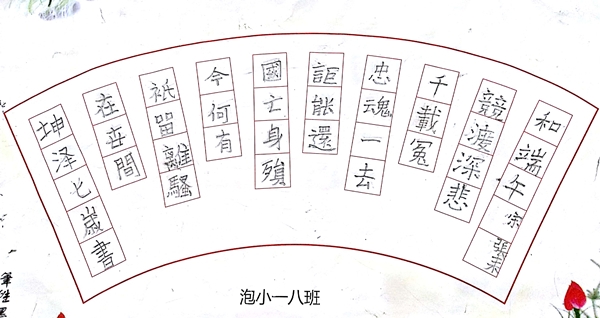 和端午 宋 張耒
競渡深悲
千載冤
忠魂一去
詎能還
國亡身殞
今何有
衹留離騷
在世間
坤泽七歲書
泡小一八班